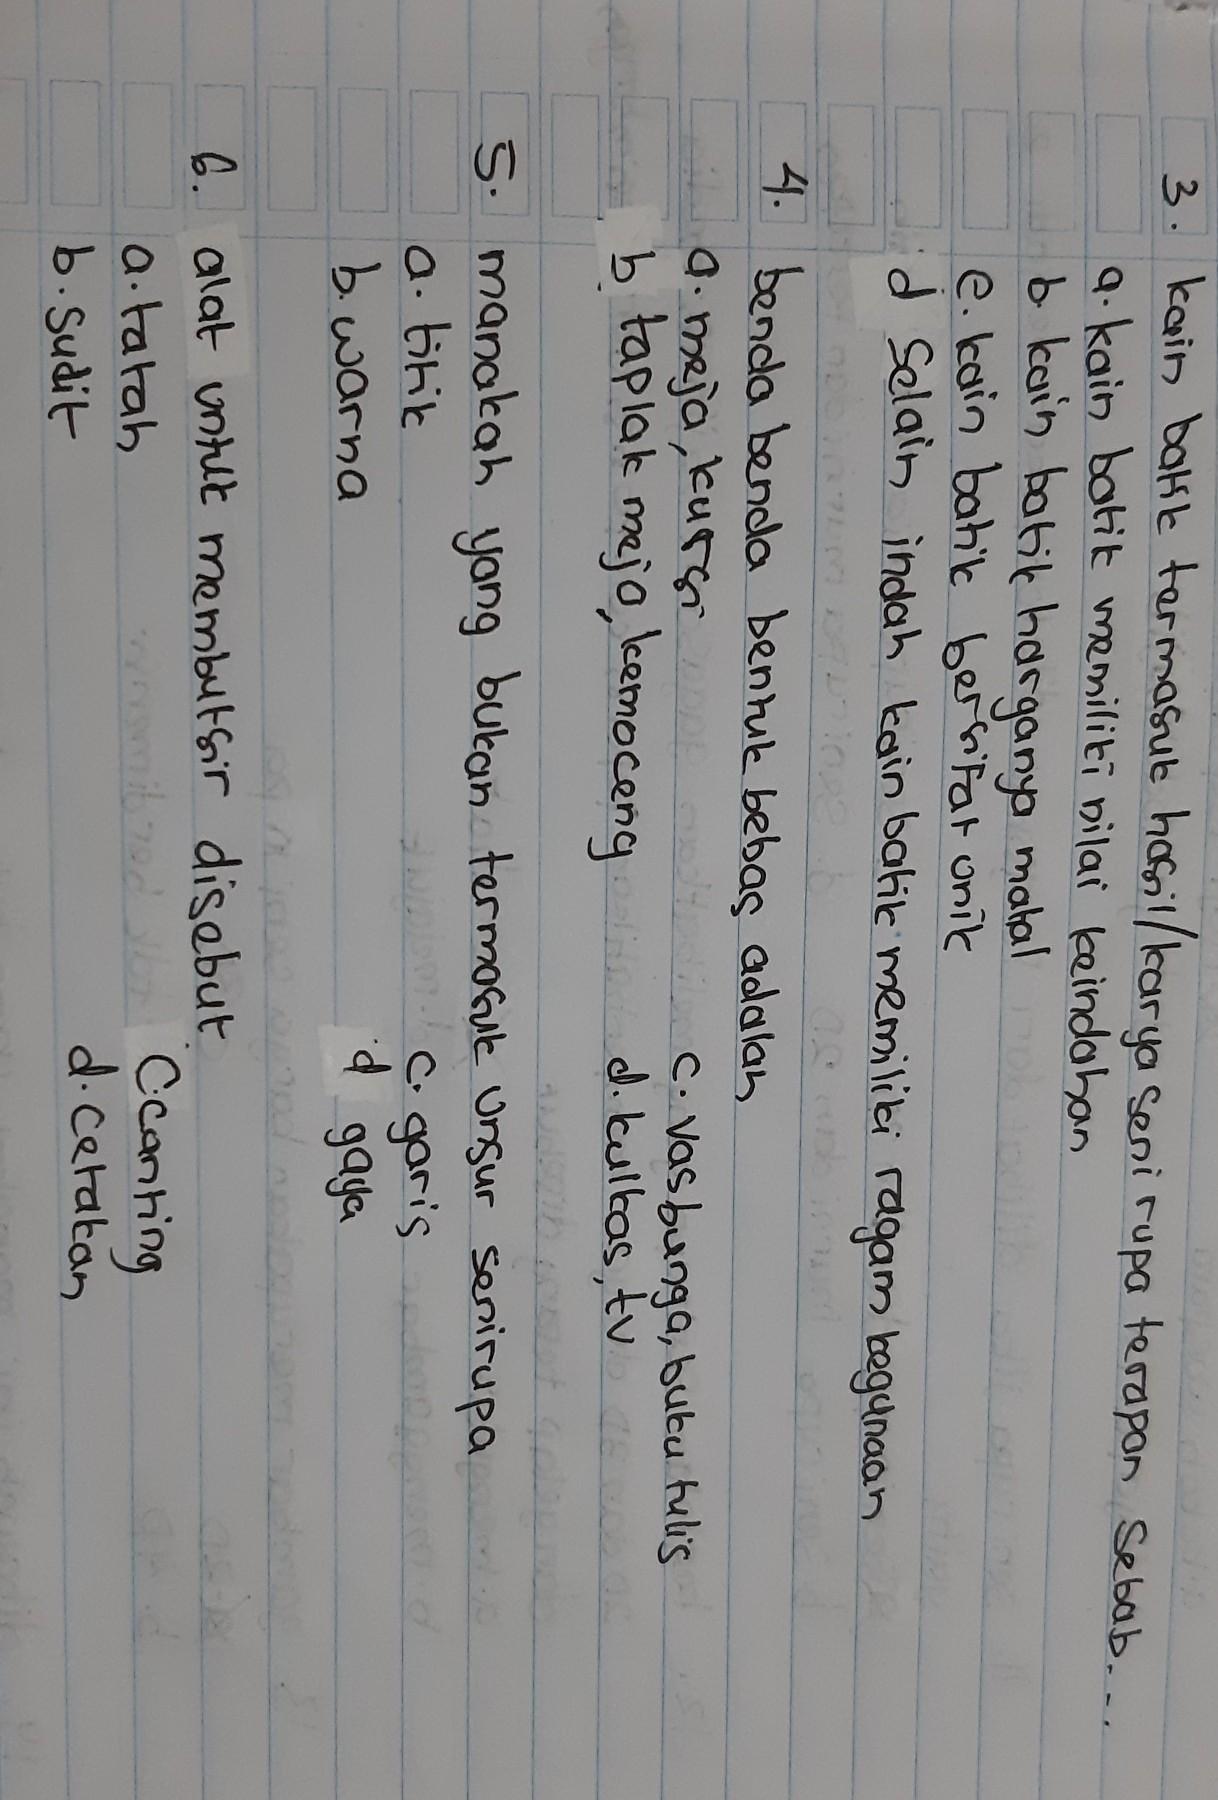 3. kain batik termasuk hasil/karya seni rupa terapan sebab...
a. kain batik memiliki nilai keindahan
b. kain batik harganya mahal
c. kain batik bersifat unik
d selain indah kain batik memiliki ragam kegunaan
4. benda benda bentuk bebas adalah
a. meja, kursi c. vas bunga, buku tulis
b. taplak meja, kemoceng d. kulkas, tv
5. manakah yang bukan termasuk unsur senirupa
a. titik c. garis
b. warna d gaya
6. alat untuk membutsir disebut
a. tatah C. canting
b. sudit d. cetakan